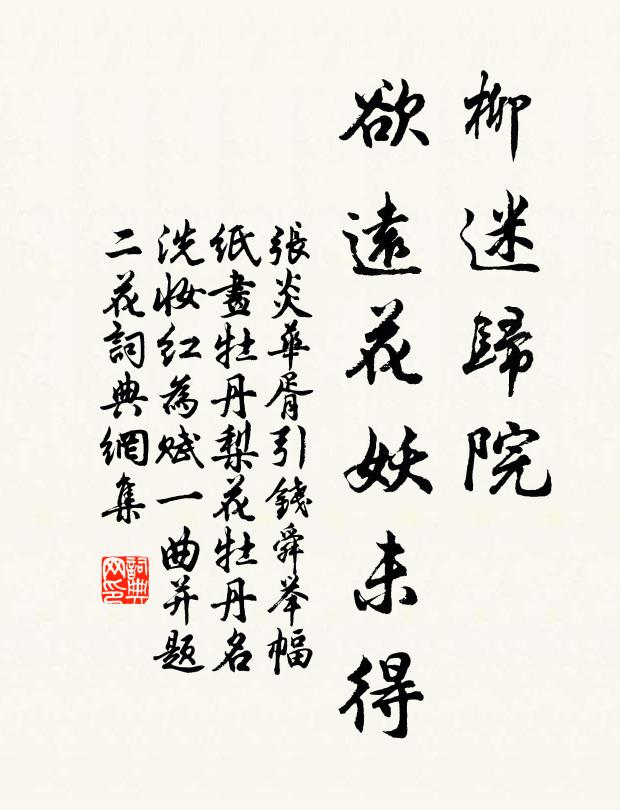 柳迷歸院
欲遠花妖未得
張炎華胥引錢舜举幅
紙畫牡丹梨花牡丹名
洗妝紅為赋一曲并题
二花詞典網集
詞典网印